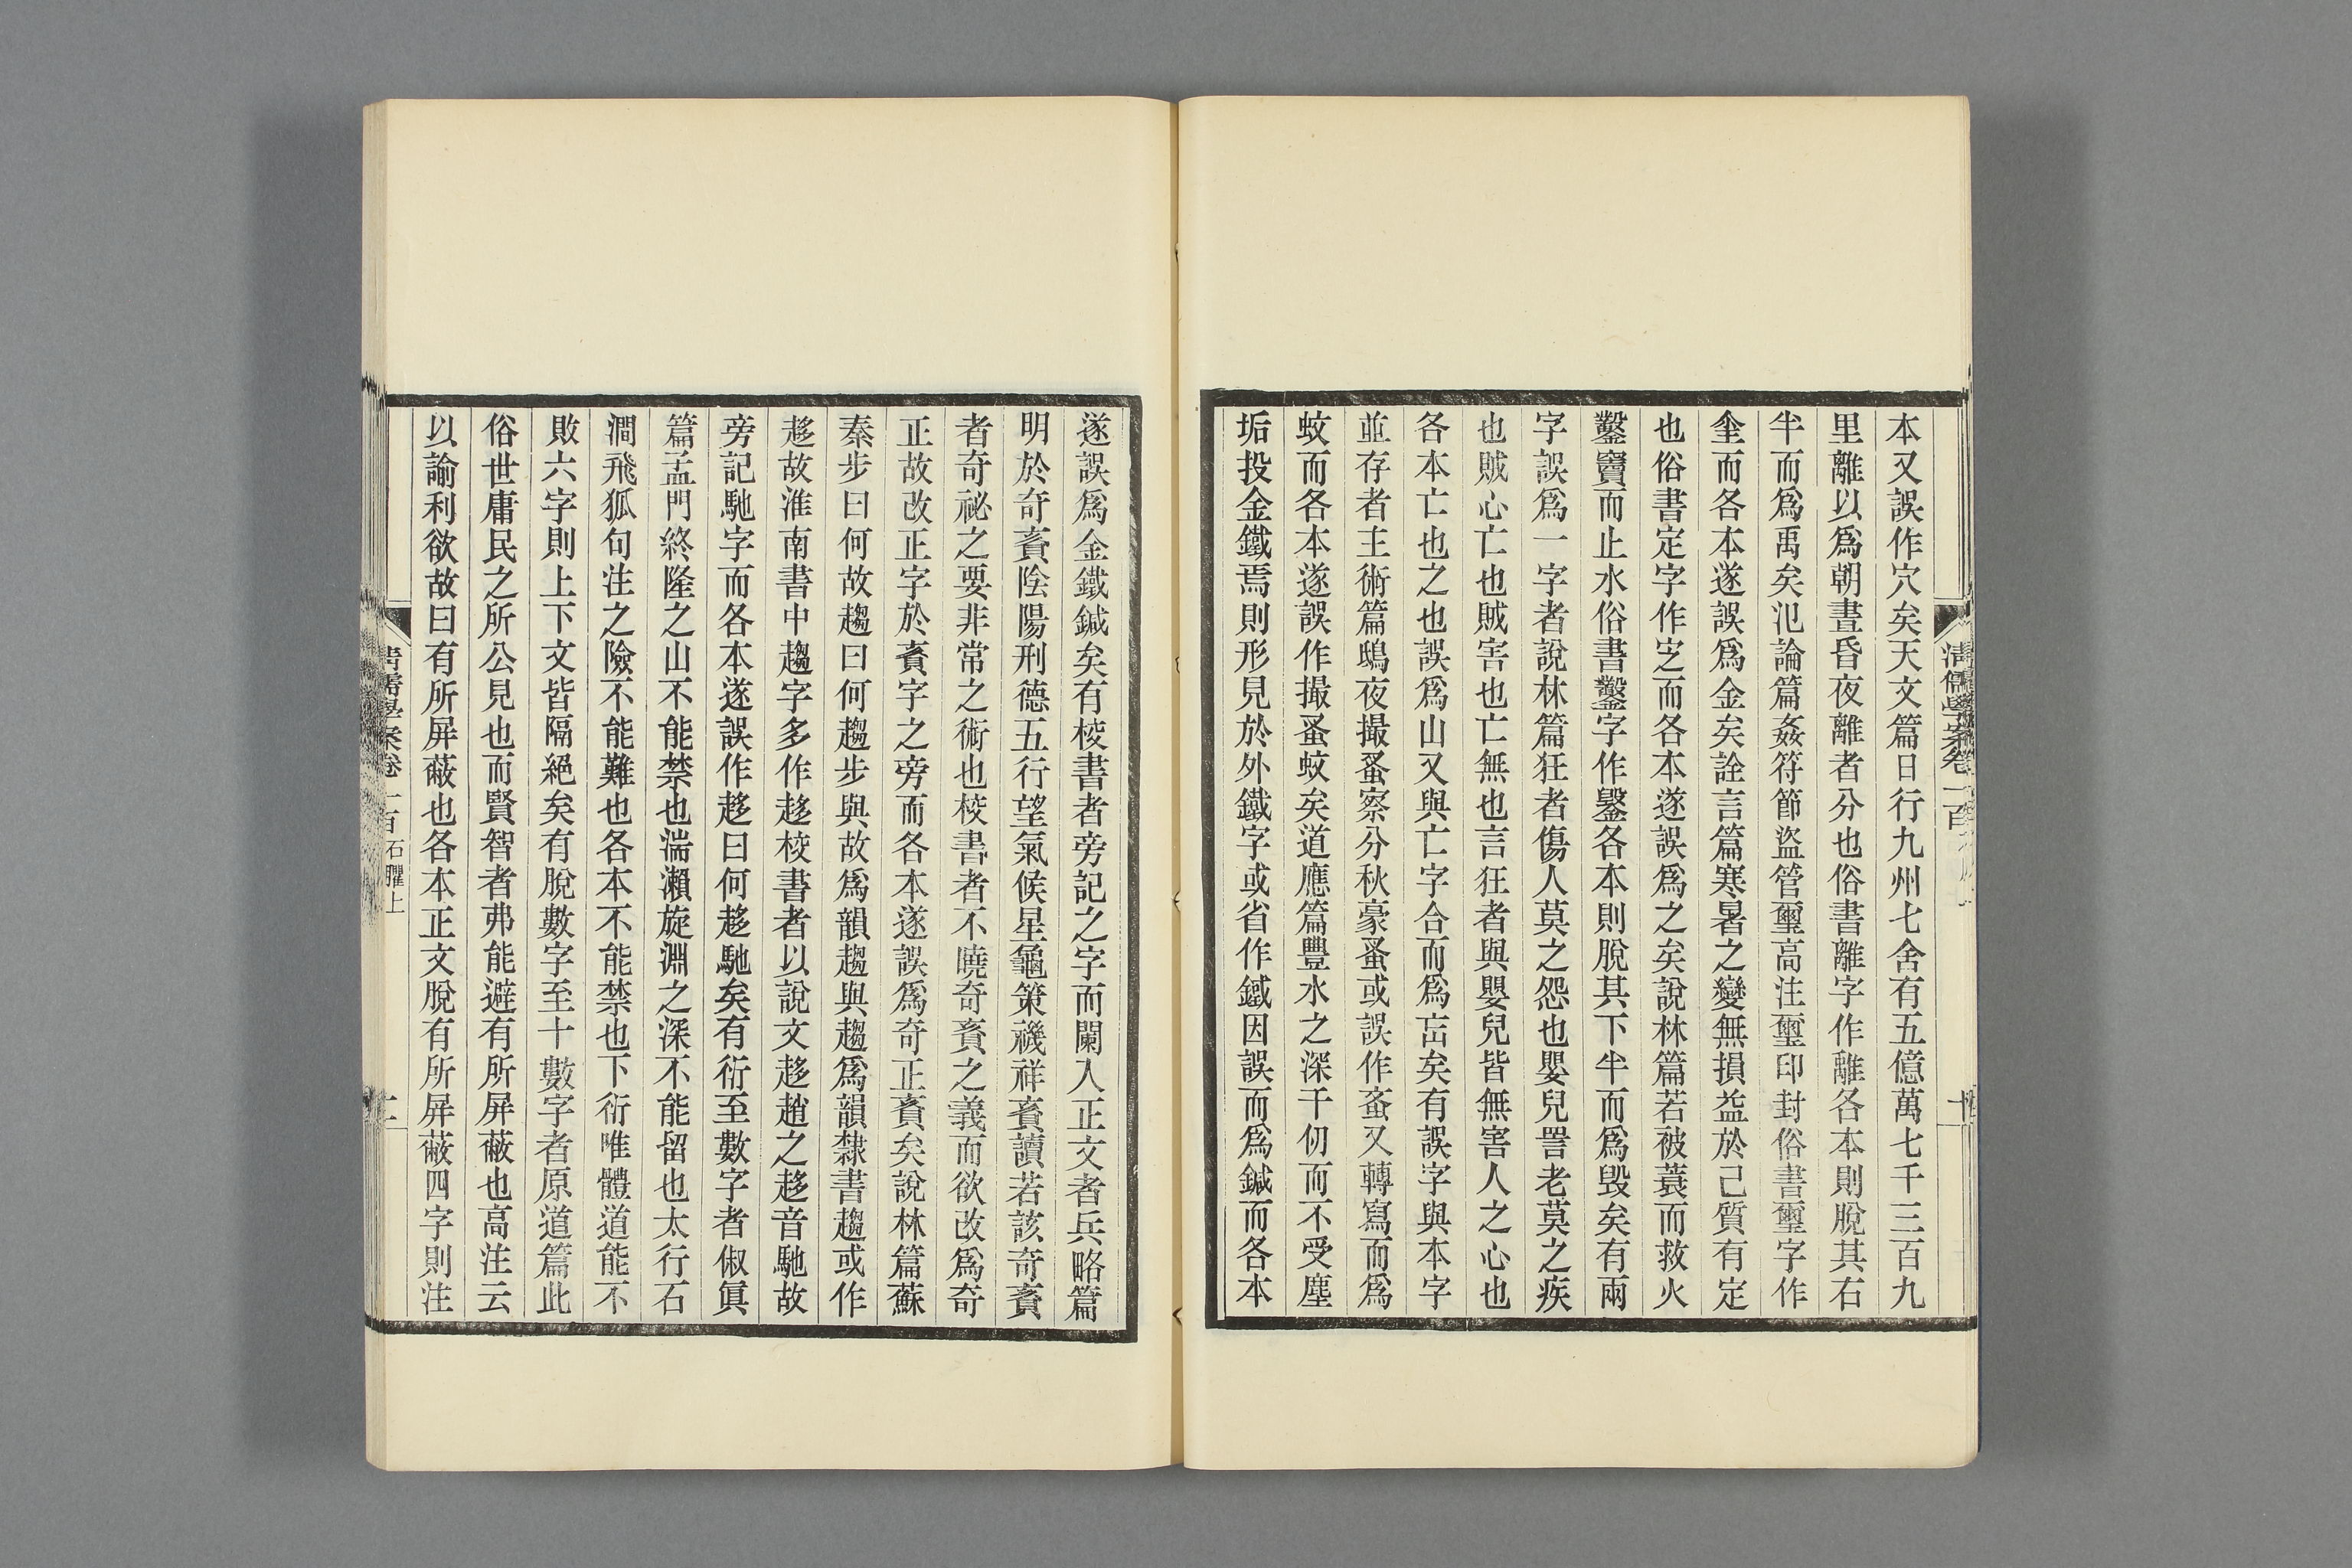 本又誤作穴矣天文篇日行九州七舍有五億萬七千三百九
里離以爲朝晝昏夜離者分也俗書離字作離各本則脫其右
半而爲禹矣氾論篇姦符節盜管璽高注璽印封俗書璽字作
𨥖而各本遂誤爲金矣詮言篇寒暑之變無損益於己質有定
也俗書定字作㝎而各本遂誤爲之矣說林篇若被蓑而救火
鑿竇而止水俗書鑿字作鑿各本則脫其下半而爲毀矣有兩
字誤爲一字者說林篇狂者傷人莫之怨也嬰兒詈老莫之疾
也賊心亡也賊害也亡無也言狂者與嬰兒皆無害人之心也
各本亡也之也誤爲山又與亡字合而爲㠵矣有誤字與本字
並存者主術篇鴟夜撮蚤察分秋豪蚤或誤作蚉又轉寫而爲
蚊而各本遂誤作撮蚤蚊矣道應篇豐水之深千仞而不受塵
垢投金鐵焉則形見於外鐵字或省作䥫因誤而爲鍼而各本
遂誤爲金鐵鍼矣有棱書者旁記之字而闌入正文者兵略篇
明於奇賌陰陽刑德五行望氣候星龜策禨祥賌讀若該奇賌
者奇祕之要非常之術也棱書者不曉奇賌之義而欲改爲奇
正故改正字於賌字之旁而各本遂誤爲奇正賌矣說林篇蘇
秦步曰何故趨曰何趨步與故爲韻趨與趨爲韻隸書趨或作
趍故淮南書中趨字多作趍棱書者以說文趍趙之趍音馳故
旁記馳字而各本遂誤作趍曰何趍馳矣有衍至數字者俶眞
篇孟門終隆之山不能禁也湍瀨旋淵之深不能留也太行石
澗飛狐句注之險不能難也各本不能禁也下衍唯體道能不
敗六字則上下文皆隔絕矣有脫數字至十數字者原道篇此
俗世庸民之所公見也而賢智者弗能避有所屏蔽也高注云
以諭利欲故曰有所屏蔽也各本正文脫有所屏蔽四字則注